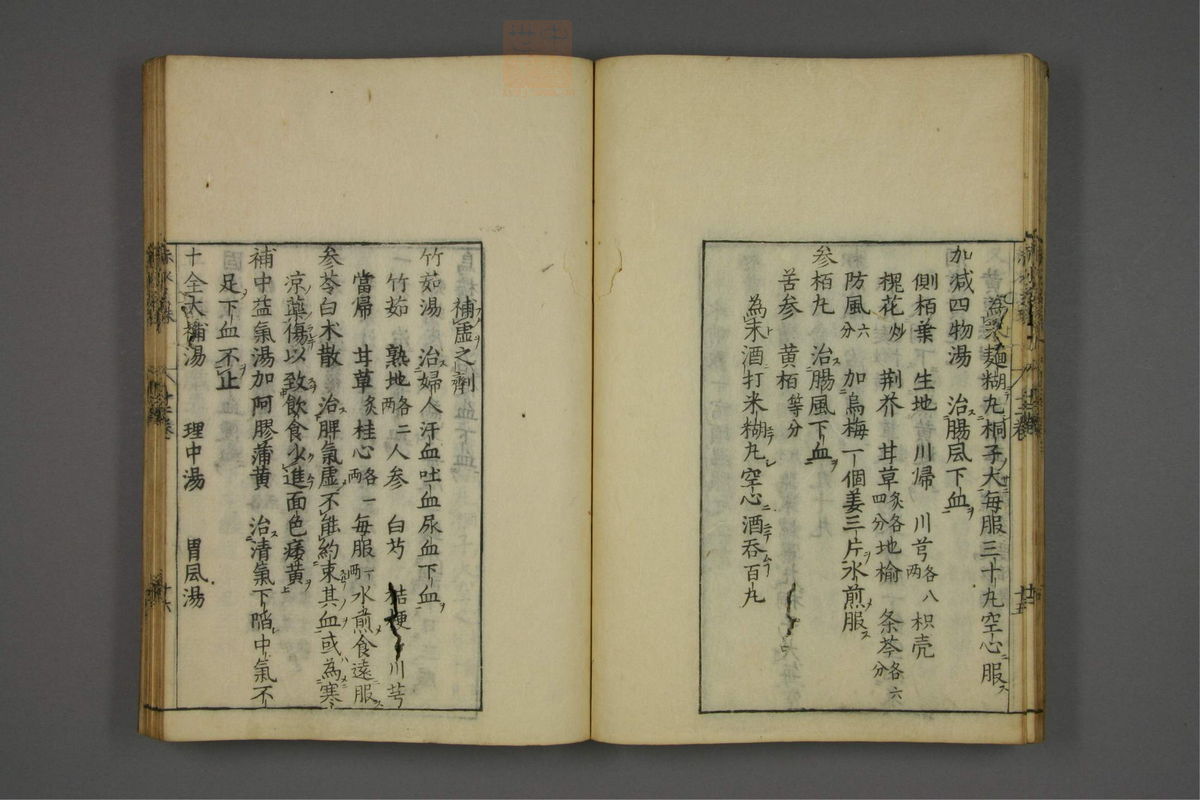 為末麺糊丸桐子大毎服三十丸空心服
加减四物湯　治腸風下血
側栢葉　生地　川帰　川芎各八両　枳壳
槐花炒　荆芥　甘草炙各四分　地榆　条芩各六分
防風六分　加烏梅一個姜三片水煎服
参栢丸　治腸風下血
苦参　黄栢等分
為末酒打米糊丸空心酒吞百丸
補虚之劑
竹茹湯　治婦人汗血吐血尿血下血
竹茹　熟地各二両　人参　白芍　桔梗　川芎
當帰　甘草炙　桂心各一両　毎服一両水煎食遠服
参苓白朮散　治脾氣虚不能約束其血或為寒
凉藥傷以致飲食少進面色痿黄
補中益氣湯加阿膠蒲黄　治清氣下陷中氣不
足下血不止
十全大補湯　理中湯　胃風湯